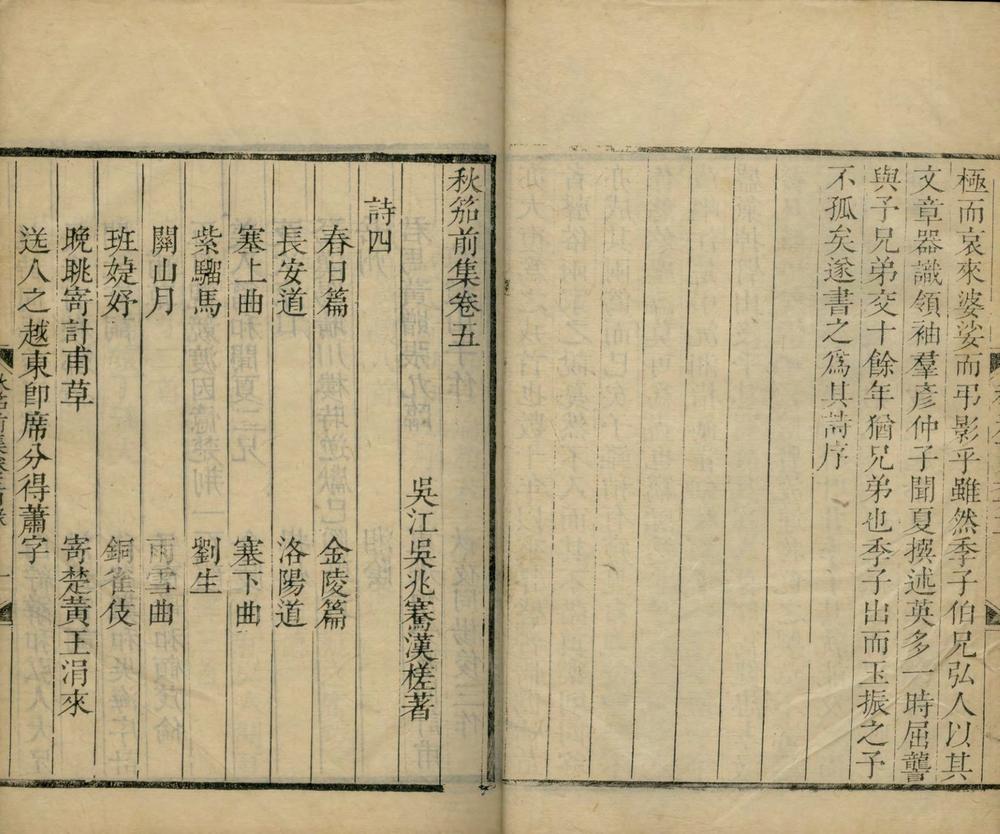 極而哀來婆娑而弔影乎雖然季子伯兄弘人以其
文章器識領袖羣彥仲子聞夏撰述英多一時屈聾
與予兄弟交十餘年猶兄弟也季子出而玉振之予
不孤矣遂書之爲其詩序
秋笳前集卷五
吳江吳兆騫漢槎著
詩四
春日篇 金陵篇
長安道 洛陽道
塞上曲 塞下曲
紫騮馬 劉生
關山月 雨雪曲
班婕妤 銅雀伎
晚眺寄計甫草 寄楚黃王涓來
送人之越東卽席分得蕭字